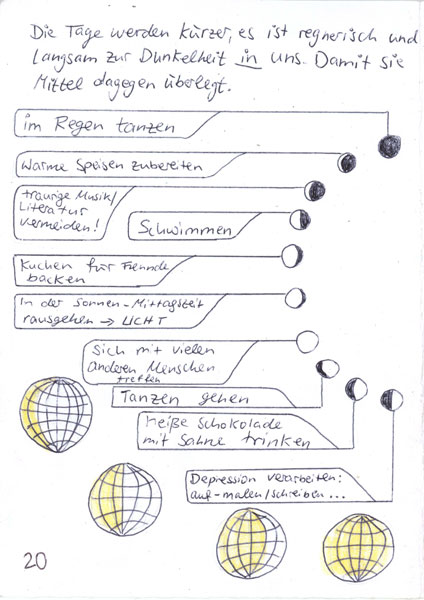 Die Tage werden kürzer, es ist regnerisch und
langsam zur Dunkelheit in uns. Damit sie
Mittel dagegen überlegt.
im Regen tanzen
Warme Speisen zubereiten
traurige Musik/
Literatur
vermeiden!
Schwimmen
Kuchen für Freunde
backen
In der Sonnen-Mittagszeit
rausgehen → LICHT
Sich mit vielen
anderen Menschen
treffen
Tanzen gehen
Heiße Schokolade
mit Sahne trinken
Depression verarbeiten:
auf-malen/schreiben...
20